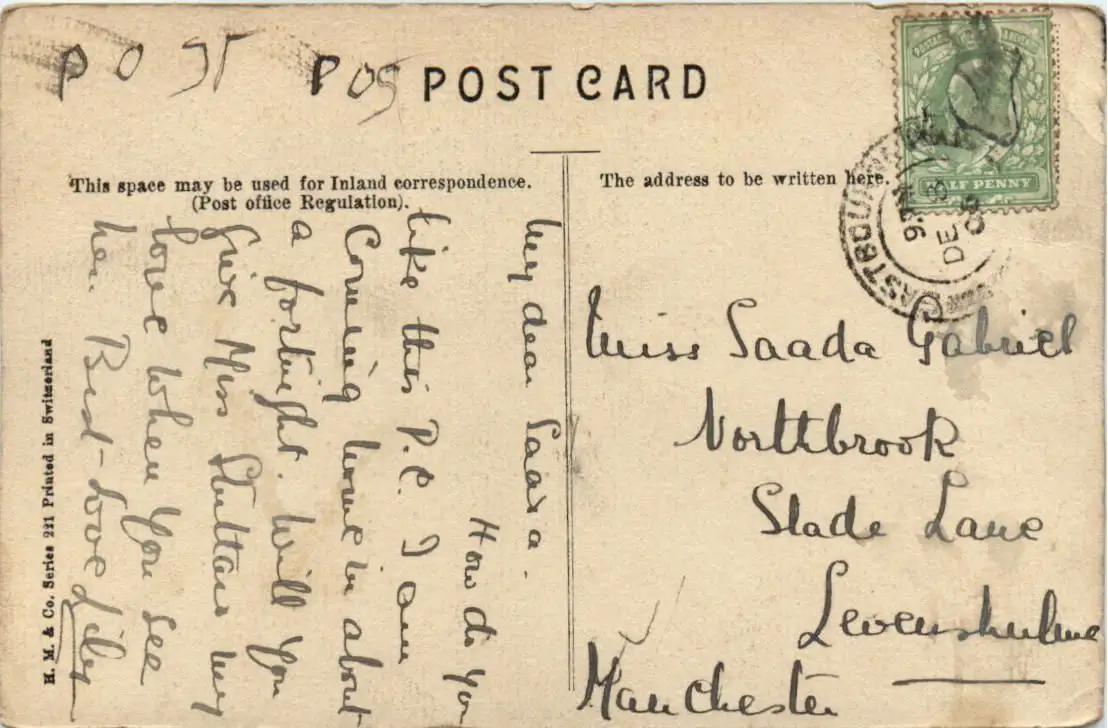 P O ST POS
POST CARD
This space may be used for Inland correspondence.
(Post office Regulation).
The address to be written here.
HALF PENNY
EASTBOURNE
DE 3
My dear Saada.
How do you
like this P.C. I am
Coming home in about
a fortnight. Will you
give Miss my
love when you see
her. Best love
Miss Saada Gabriel
Northbrook
Slade Lane
Levenshulme
Manchester
H. M. & Co. Series 221 Printed in Switzerland